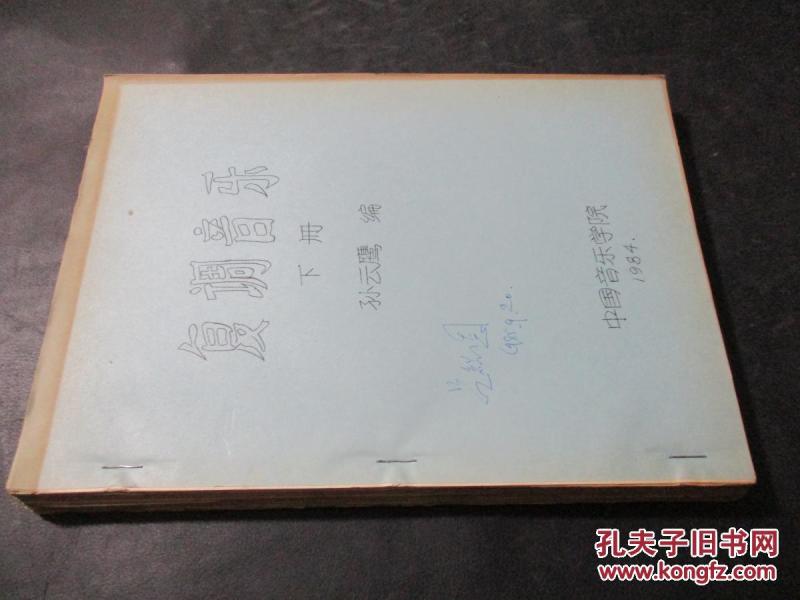 复调音乐
下册
孙云鹰 编
1985.9.20.
中国音乐学院
1984.
孔夫子旧书网
www.kongfz.com